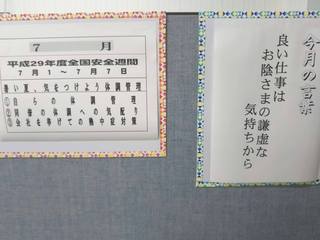 7　月
平成29年度全国安全週間
7月1～7月7日
暑い夏、気をつけよう体調管理
①自らの体調管理
②同僚の体調への気配り
③会社を挙げての熱中症対策
今月の言葉
良い仕事は
お陰さまの謙虚な
気持ちから